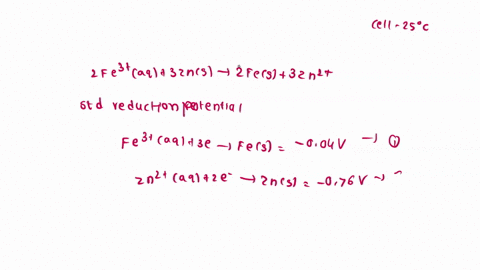 cell - 25°c
2Fe³⁺(aq) + 3zn(s) → 2Fe(s) + 3zn²⁺
std reduction potential
Fe³⁺(aq) + 3e → Fe(s) = -0.04V → ①
zn²⁺(aq) + 2e⁻ → zn(s) = -0.76V →